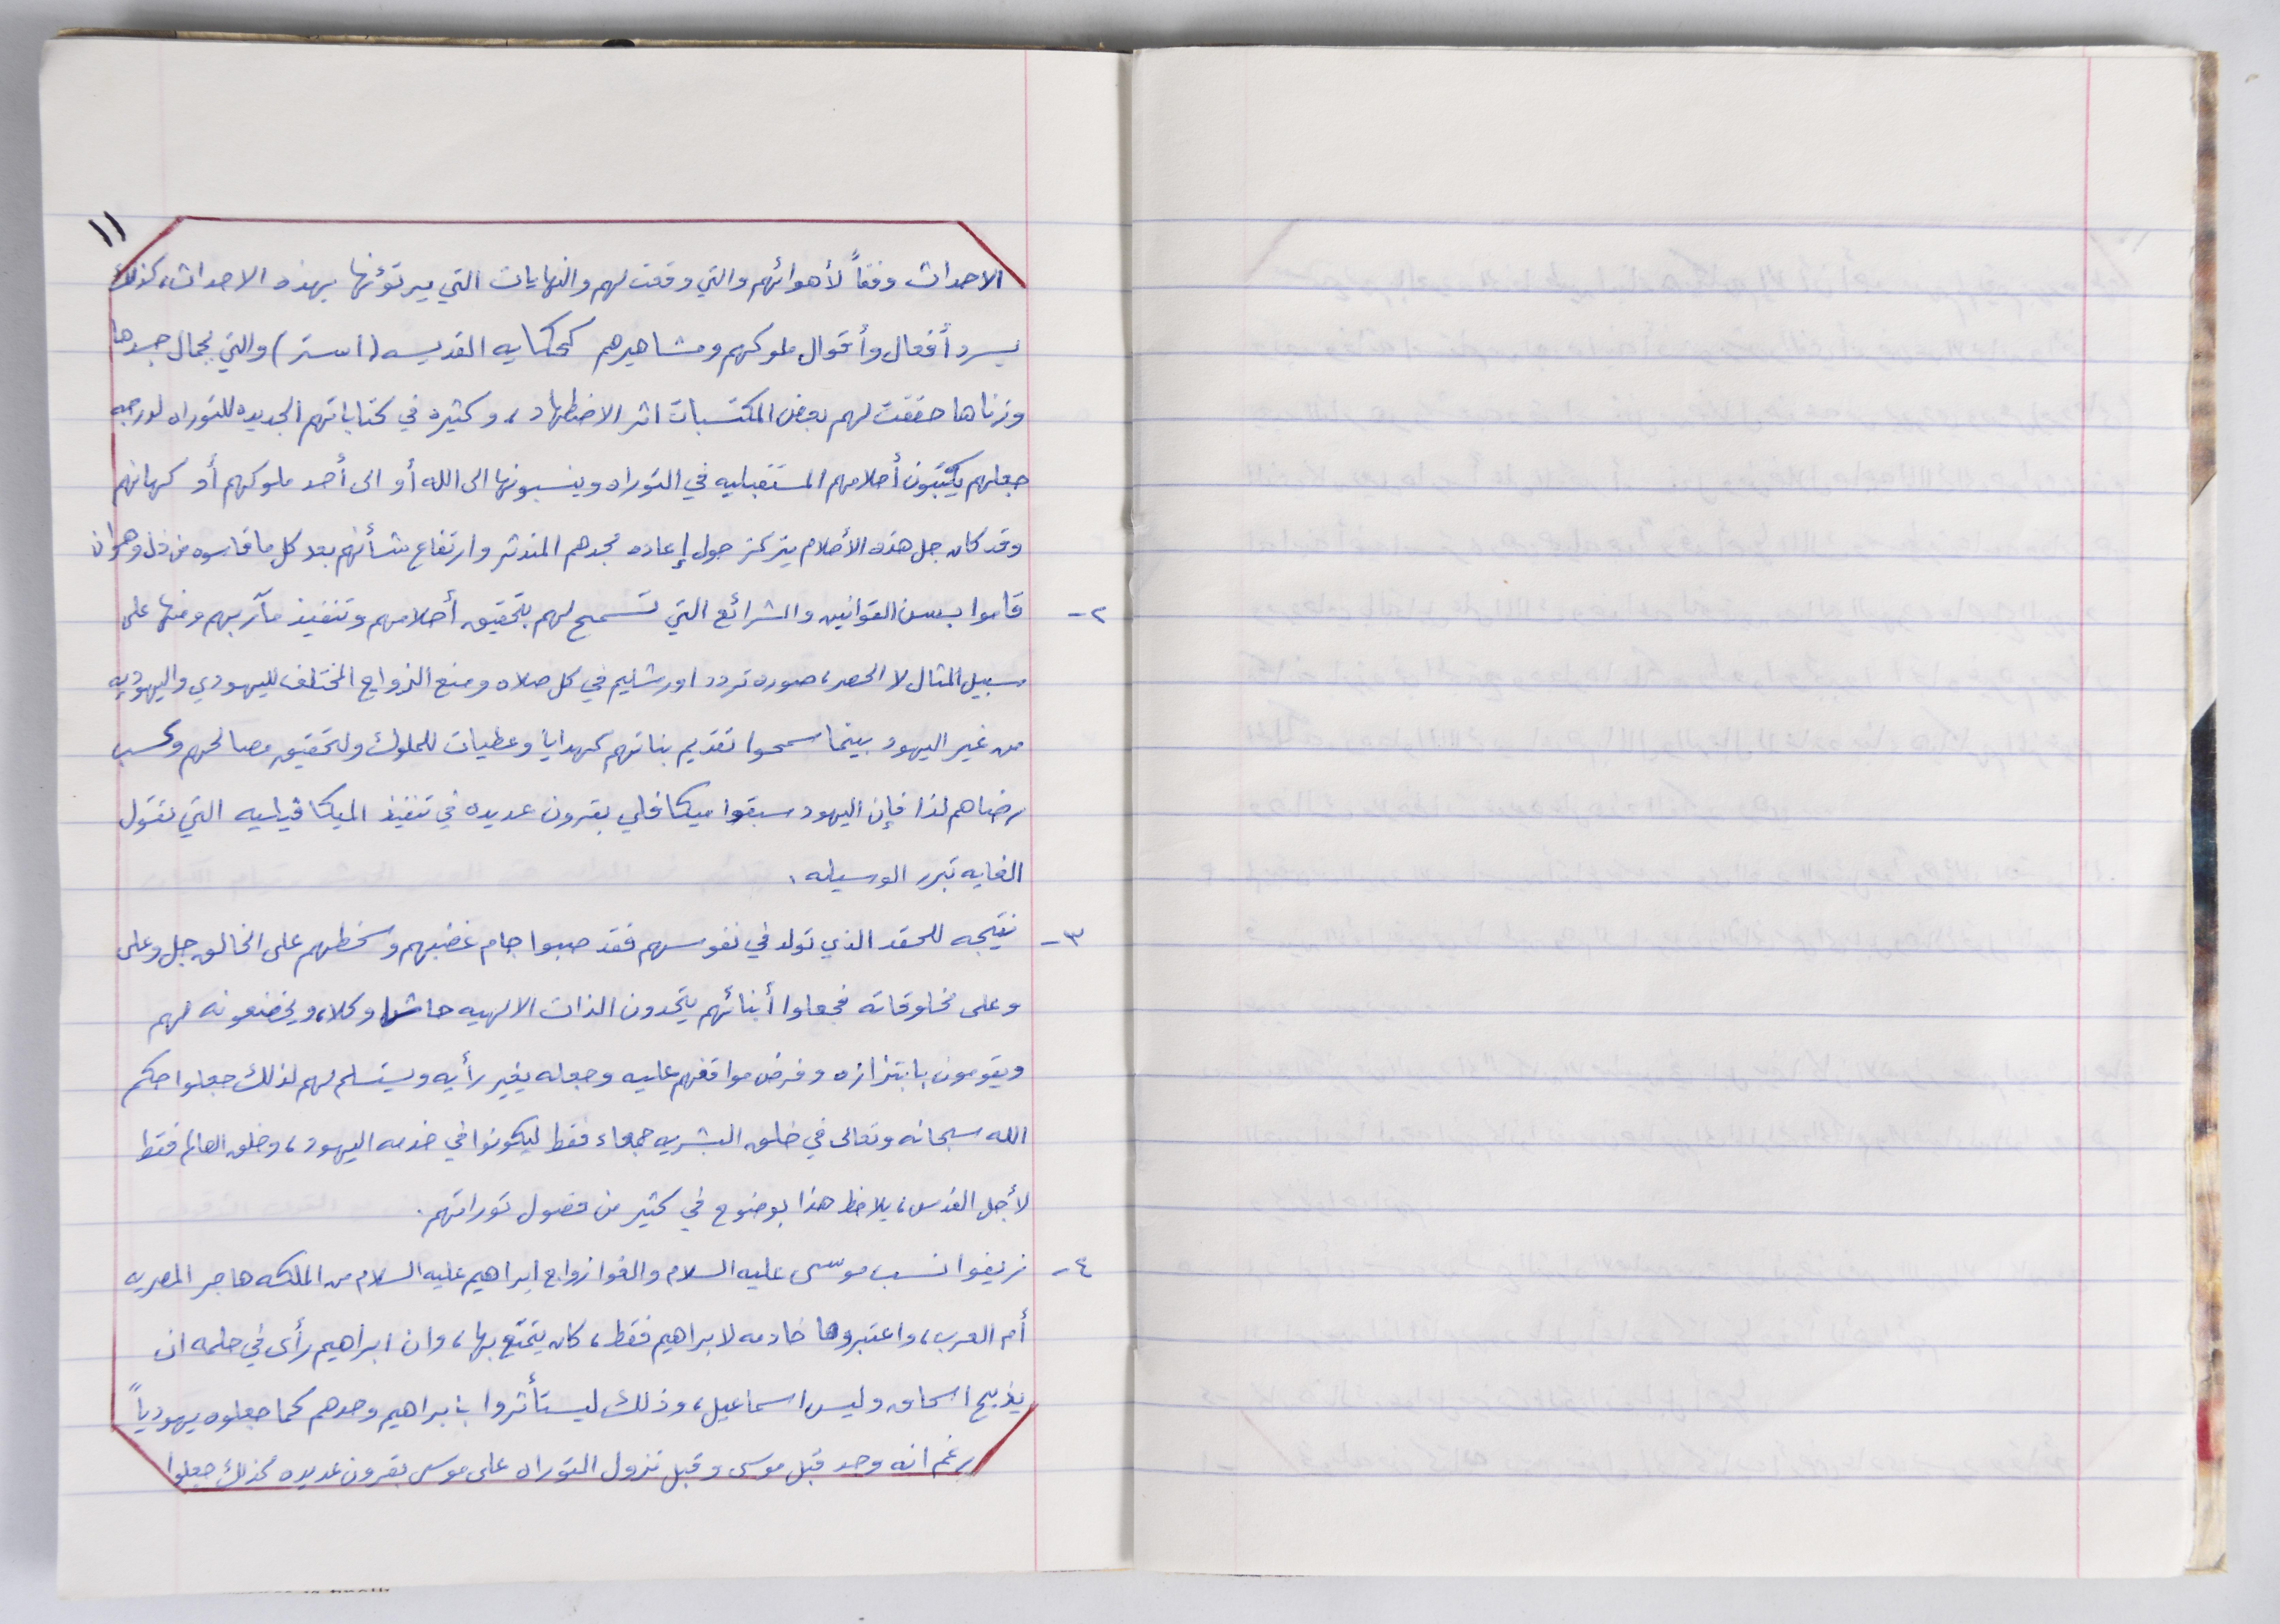 ١١
الاحداث وفقاً لأهوائهم والتي وقعت لهم والنهايات التي يرتؤنها بهذه الاحداث، كذلك
يسرد أفعال وأقوال ملوكهم ومشاهيرهم كحكايه القديسه (استر) والتي بجمال جسدها
وزناها حققت لهم بعض المكتسبات اثر الاضطهاد، وكثيره في كتاباتهم الجديده للتوراه لدرجه
جعلهم يكتبون أحلامهم المستقبليه في التوراه وينسبونها الى الله أو الى أحد ملوكهم أو كهانهم
وقد كان جل هذه الأحلام يتركز حول إعاده مجدهم المندثر وارتفاع شأنهم بعد كل ما قاسوه من ذل وهوان
٢- قاموا بسن القوانين والشرائع التي تسمح لهم بتحقيق أحلامهم وتنفيذ مآربهم ومنها على
سبيل المثال لا الحصر، صوره تردد اورشليم في كل صلاه ومنع الزواج المختلف لليهودي واليهوديه
من غير اليهود بينما سمحوا تقديم بناتهم كهدايا وعطيات للملوك ولتحقيق مصالحهم وكسب
رضاهم لذا فإن اليهود سبقوا ميكافلي بقرون عديده في تنفيذ الميكافيليه التي تقول
الغايه تبرر الوسيله.
٣- نتيجه للحقد الذي تولد في نفوسهم فقد صبوا جام غضبهم وسخطهم على الخالق جل وعلى
وعلى مخلوقاته فجعلوا أبنائهم يتحدون الذات الالهيه حاشا وكلا، ويخضعونه لهم
ويقومون بابتزازه وفرض مواقفهم عليه وجعله يغير رأيه ويستسلم لهم لذلك جعلوا حكم
الله سبحانه وتعالى في خلق البشريه جمعاء فقط ليكونوا في خدمه اليهود، وخلق العالم فقط
لأجل القدس، يلاحظ هذا بوضوح في كثير من فصول توراتهم.
٤- زيفوا نسب موسى عليه السلام والغوا زواج ابراهيم عليه السلام من الملكه هاجر المصريه
أم العرب، واعتبروها خادمه لابراهيم فقط، كان يتمتع بها، وان ابراهيم رأى في حلمه ان
يذبح اسحاق وليس اسماعيل، وذلك ليستأثروا بابراهيم وحدهم كما جعلوه يهودياً
برغم انه وجد قبل موسى وقبل نزول التوراه على موسى بقرون عديده كذلك جعلوا